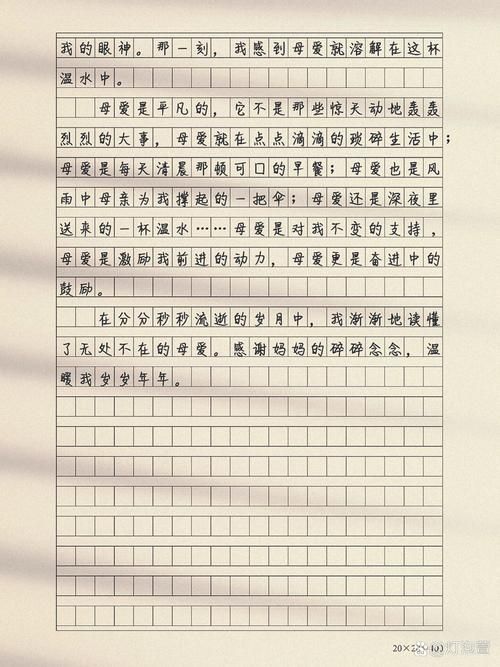 我的眼神。那一刻，我感到母爱就溶解在这杯
温水中。
母爱是平凡的，它不是那些惊天动地轰轰
烈烈的大事，母爱就在点点滴滴的琐碎生活中；
母爱是每天清晨那顿可口的早餐；母爱也是风
雨中母亲为我撑起的一把伞；母爱还是深夜里
送来的一杯温水……母爱是对我不变的支持，
母爱是激励我前进的动力，母爱更是奋进中的
鼓励。
在分分秒秒流逝的岁月中，我渐渐地读懂
了无处不在的母爱。感谢妈妈的碎碎念念，温
暖我岁岁年年。
20×20=400